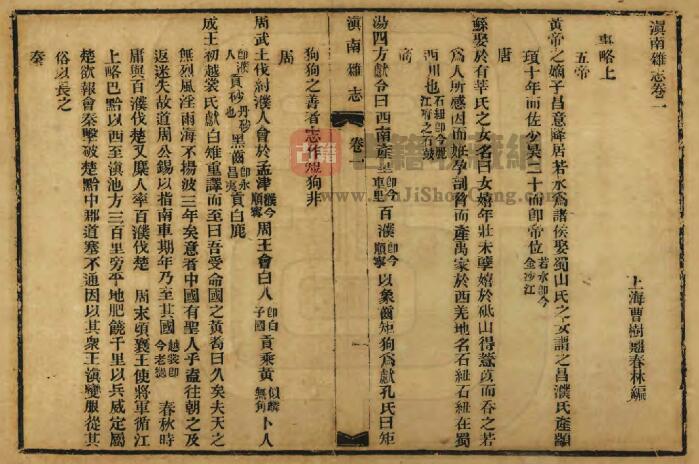 滇南雜志卷一
上海曹樹翹春林編
事略上
五帝
黃帝之嫡子昌意降居若水為諸侯娶蜀山氏之女謂之昌濮氏產顓
頊十年而佐少昊二十而卽帝位若水卽今金沙江
唐
鯀娶於有莘氏之女名曰女嬉年壯未孳嬉於砥山得薏苡而吞之若
為人所感因而妊孕剖脅而產禹家於西羌地名石紐石紐在蜀
西川也石紐卽今麗江府之石鼓
商
湯四方獻令曰西南產里卽今車里百濮卽今順寧以象齒矩狗為獻孔氏曰矩
滇南雜志 卷一 一
狗狗之善者志作短狗非
周
周武王伐紂濮人會於孟津濮今順寧周王會白人卽白子國貢乘黃似麟無角卜人
卽濮人貢砂丹砂黑齒卽永昌夷貢白鹿
成王初越裳氏獻白雉重譯而至曰吾受命國之黃耇曰久矣夫天之
無烈風淫雨海不揚波三年矣意者中國有聖人乎盍往朝之及
返迷失故道周公錫以指南車期年乃至其國越裳卽今老撾 春秋時
庸與百濮伐楚又麇人率百濮伐楚 周末頃襄王使將軍循江
上略巴黔以西至滇池方三百里旁平地肥饒千里以兵威定屬
楚欲報會秦擊破楚黔中郡道塞不通因以其衆王滇變服從其
俗以長之
秦
古籍
古籍收藏網
GuJiShouCang.com